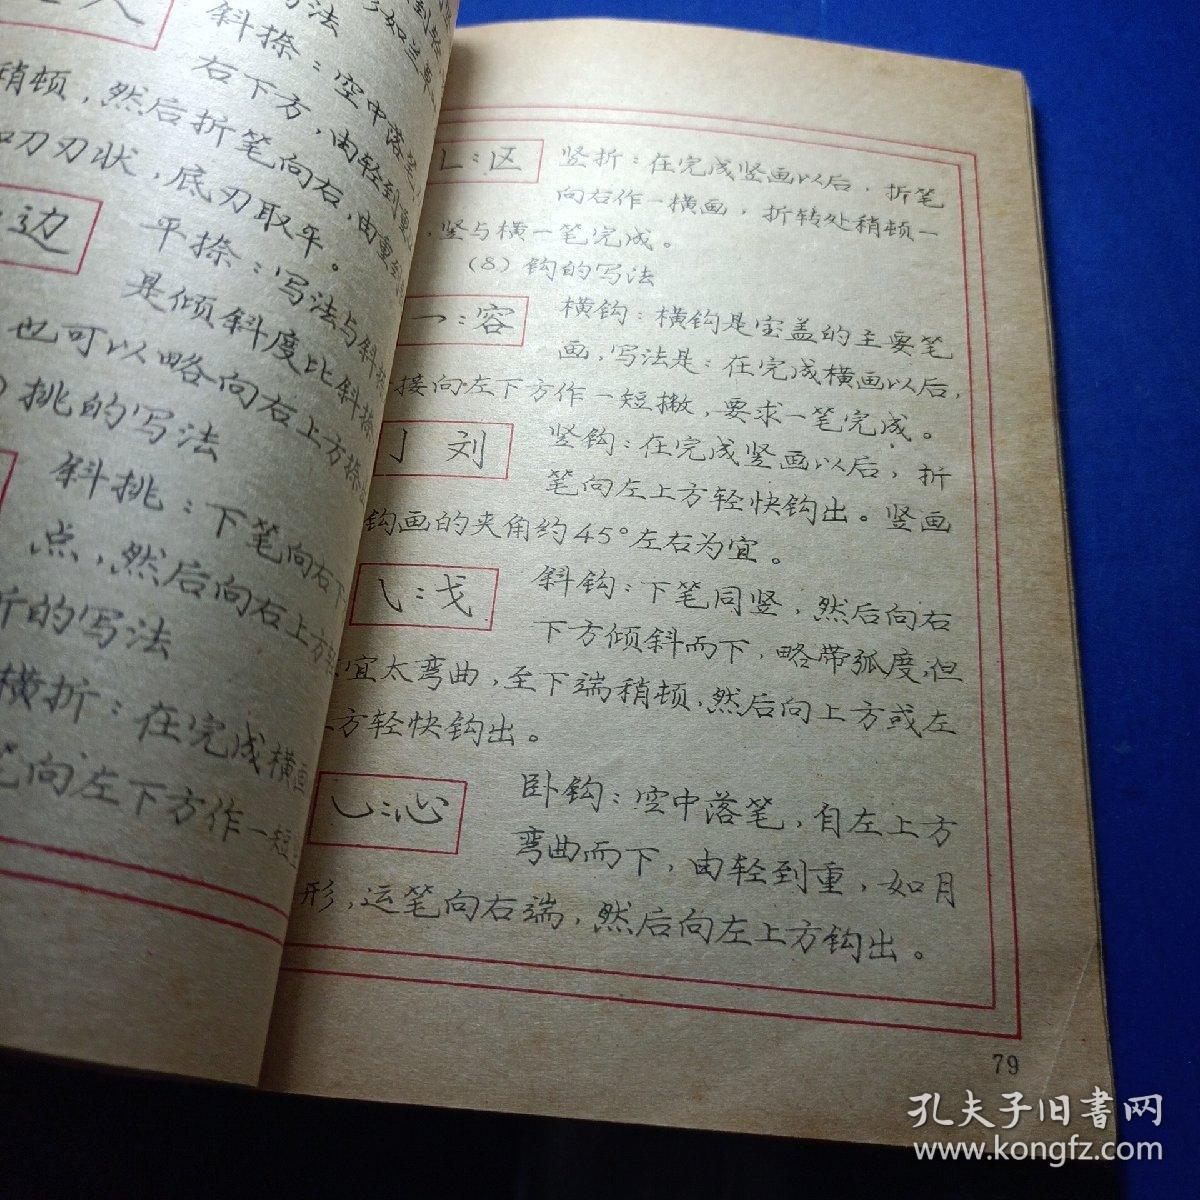 人
写法
斜捺：空中落笔，
右下方，由轻到重
稍顿，然后折笔向右，由重到
刀刃状，底刃取平。
边
平捺：写法与斜捺
是倾斜度比斜捺
也可以略向右上方捺
）挑的写法
斜挑：下笔向右下
点，然后向右上方
折的写法
横折：在完成横画
笔向左下方作一短
乚：区
竖折：在完成竖画以后，折笔
向右作一横画，折转处稍顿一
，竖与横一笔完成。
（8）钩的写法
乛：容
横钩：横钩是宝盖的主要笔
画，写法是：在完成横画以后，
接向左下方作一短撇，要求一笔完成。
亅 刘
竖钩：在完成竖画以后，折
笔向左上方轻快钩出。竖画
钩画的夹角约45°左右为宜。
㇂：戈
斜钩：下笔同竖，然后向右
下方倾斜而下，略带弧度，但
宜太弯曲，至下端稍顿，然后向上方或左
上方轻快钩出。
㇃：沁
卧钩：空中落笔，自左上方
弯曲而下，由轻到重，如月
形，运笔向右端，然后向左上方钩出。
79
孔夫子旧書网
www.kongfz.com